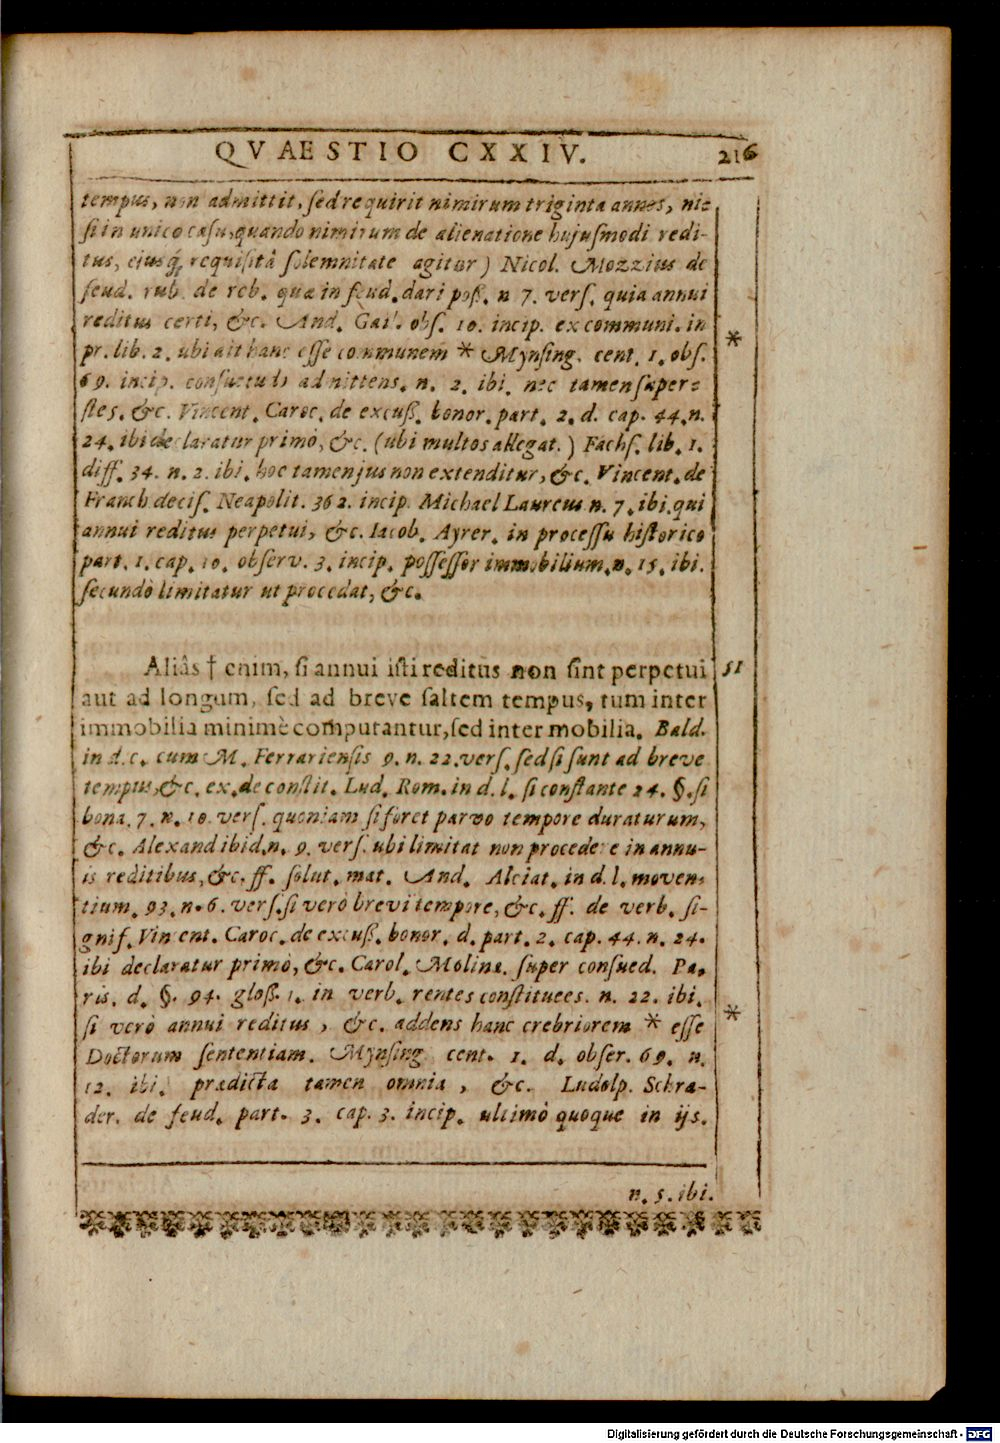 QVAESTIO CXXIV. 216
tempus, non admittit, ſed requirit nimirum triginta annos, ni-
ſi in unico caſu, quando nimirum de alienatione hujuſmodi redi-
tus, ejusq́; requiſitâ ſolemnitate agitur) Nicol. Mozzius de
feud. rub. de reb. quæ in feud. dari poſſ. n 7. verſ. quia annui
reditus certi, &c. And. Gail. obſ. 10. incip. ex communi. in
pr. lib. 2. ubi ait hanc eſſe communem * Mynſing. cent. 1. obſ. *
69. incip. conſuetudo admittens. n. 2. ibi. nec tamen ſuper-
ſtes. &c. Vincent. Caroc. de excuſſ. bonor. part. 2. d. cap. 44. n.
24. ibi declaratur primò, &c. (ubi multos allegat.) Fachſ. lib. 1.
diff. 34. n. 2. ibi. hoc tamen jus non extenditur, &c. Vincent. de
Franch deciſ. Neapolit. 362. incip. Michael Laureus n. 7. ibi. qui
annui reditus perpetui, &c. Iacob. Ayrer. in proceſſu hiſtorico
part. 1. cap. 10. obſerv. 3. incip. poſſeſſor immobilium. n. 15. ibi.
ſecundò limitatur ut procedat, &c.
Aliâs † enim, ſi annui iſti reditus non ſint perpetui 51
aut ad longum, ſed ad breve ſaltem tempus, tum inter
immobilia minimè computantur, ſed inter mobilia. Bald.
in d. c. cum M. Ferrarienſis 9. n. 22. verſ. ſed ſi ſunt ad breve
tempus, &c. ex. de conſtit. Lud. Rom. in d. l. ſi conſtante 24. §. ſi
bona. 7. n. 10. verſ. quoniam ſi foret parvo tempore duraturum,
&c. Alexand ibid. n. 9. verſ. ubi limitat non procedere in annu-
is reditibus, &c. ff. ſolut. mat. And. Alciat. in d. l. moven-
tium. 93. n. 6. verſ. ſi verò brevi tempore, &c. ff. de verb. ſi-
gnif. Vincent. Caroc. de excuſſ. bonor. d. part. 2. cap. 44. n. 24.
ibi declaratur primò, &c. Carol. Molinæ. ſuper conſued. Pa-
ris. d. §. 94. gloſſ. 1. in verb. rentes conſtituees. n. 22. ibi.
ſi verò annui reditus, &c. addens hanc crebriorem * eſſe *
Doctorum ſententiam. Mynſing cent. 1. d. obſer. 69. n.
12. ibi. prædicta tamen omnia, &c. Ludolp. Schra-
der. de feud. part. 3. cap. 3. incip. ultimò quoque in ijs.
n. 5. ibi.
Digitalisierung gefördert durch die Deutsche Forschungsgemeinschaft - DFG